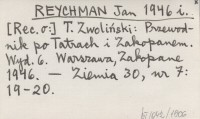 REYCHMAN Jan 1946 i.
[Rec. o:] T. Zwoliński: Przewod-
nik po Tatrach i Zakopanem.
Wyd. 6. Warszawa, Zakopane
1946. — Ziemia 30, nr 7:
19-20.